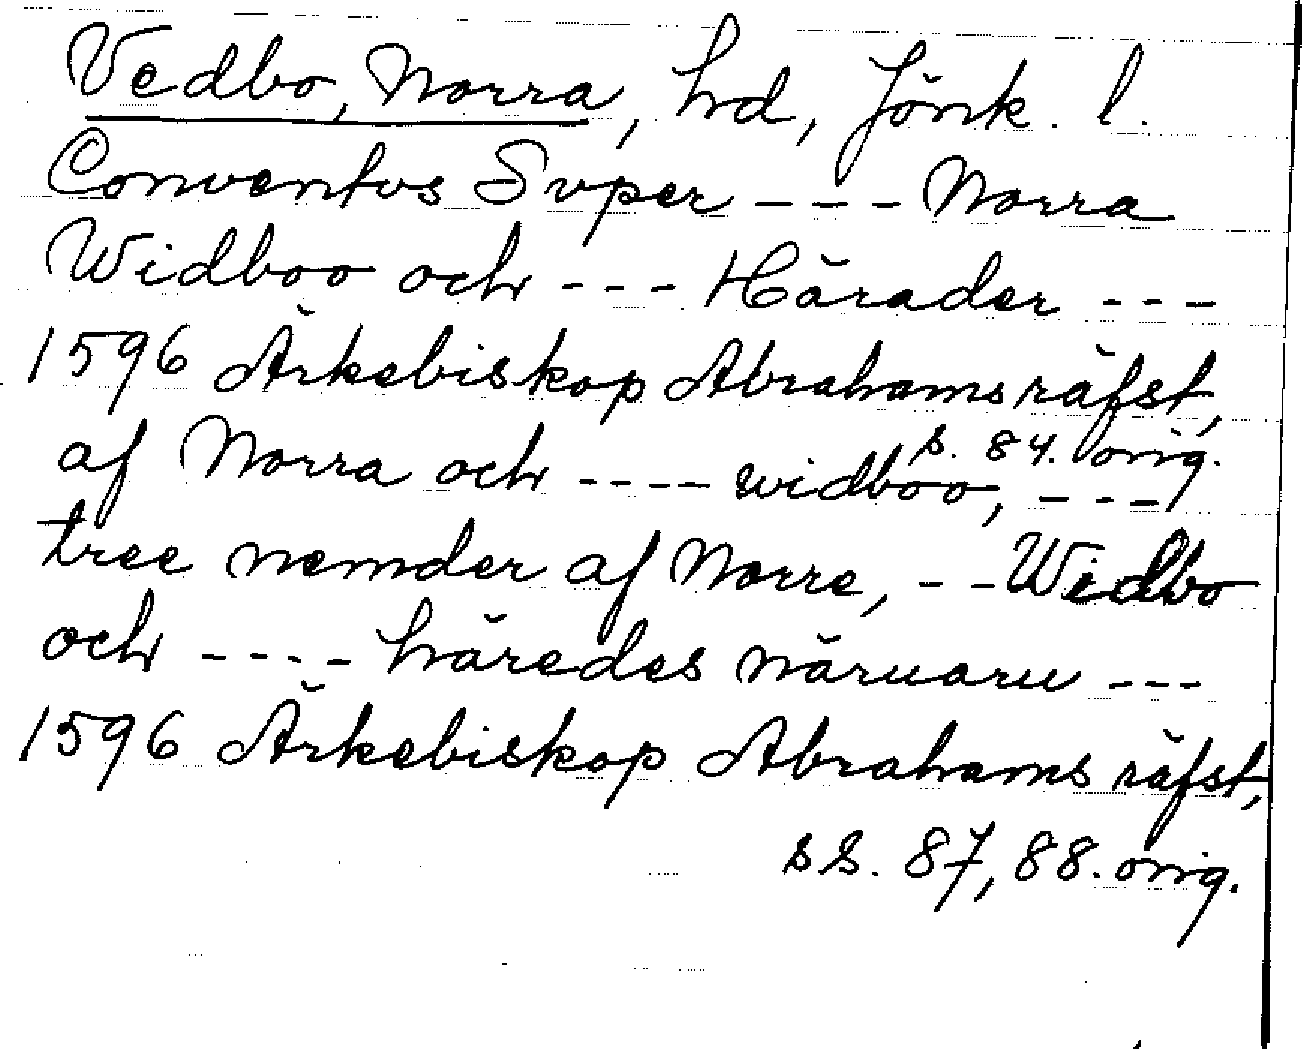 Vedbo, Norra, hd, Jönk. l.
Conventus Super - - - Norra
Widboo och - - - Härader - - -
1596 Ärkebiskop Abrahams räfst,
s. 84. orig.
af Norra och - - - - widboo, - - -
tree nemder af Norre, - - Wedbo
och - - - - häredes näruaru - - -
1596 Ärkebiskop Abrahams räfst,
ss. 87, 88. orig.